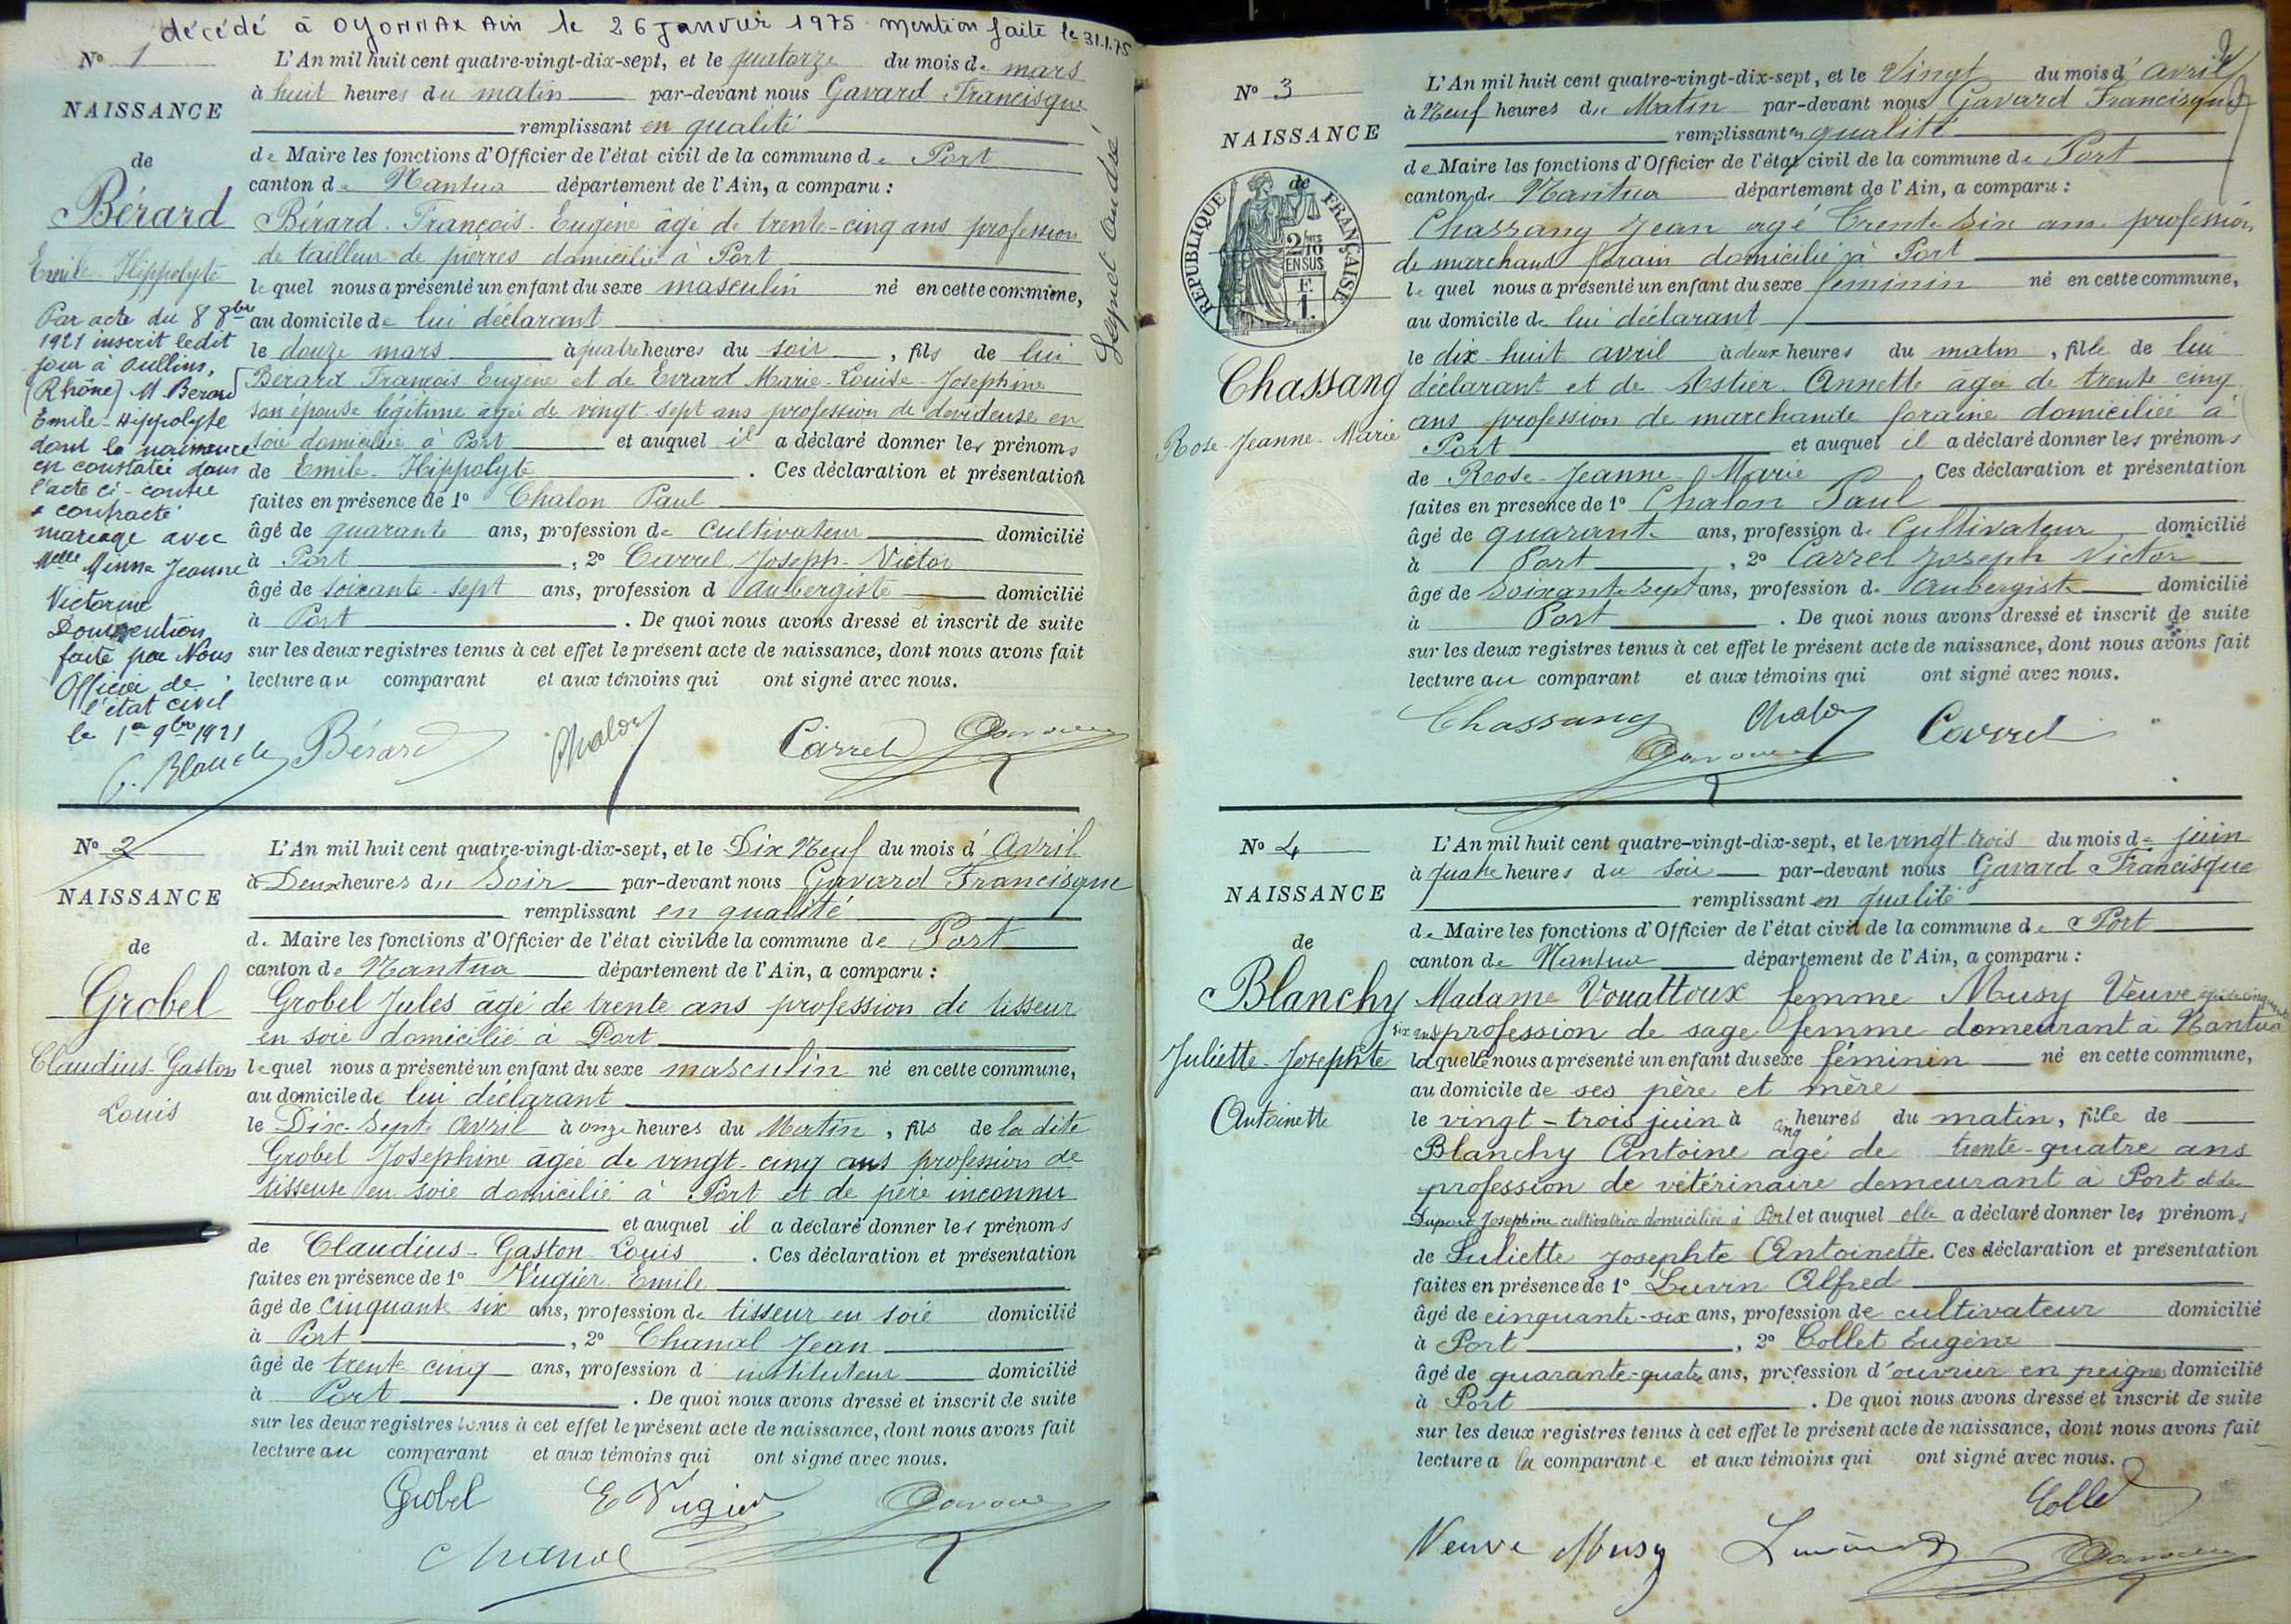 décédé à OYONNAX Ain le 26 janvier 1975 mention faite le 31.1.75
N° 1
NAISSANCE
de
Bérard
Emile-Hippolyte
Par acte du 8 8bre
1921 inscrit ledit
jour à Oullins,
(Rhône) M. Berard
Emile-Hippolyte
dont la naissance
est constatée dans
l'acte ci-contre
a contracté
mariage avec
Melle Menna Jeanne
Victorine
Dont mention
faite par Nous
Officier de
l'état civil
le 1er 9bre 1921
L'An mil huit cent quatre-vingt-dix-sept, et le quatorze du mois de mars
à huit heures du matin par-devant nous Gavard Francisque
remplissant en qualité
de Maire les fonctions d'Officier de l'état civil de la commune de Port
canton de Nantua département de l'Ain, a comparu :
Bérard François-Eugène âgé de trente-cinq ans profession
de tailleur de pierres domicilié à Port
lequel nous a présenté un enfant du sexe masculin né en cette commune,
au domicile de lui déclarant
le douze mars à quatre heures du soir, fils de lui
Bérard François Eugène et de Evrard Marie-Louise-Josephine
son épouse légitime âgée de vingt-sept ans profession de dévideuse en
soie domiciliée à Port et auquel il a déclaré donner les prénoms
de Emile-Hippolyte. Ces déclaration et présentation
faites en présence de 1° Chalon Paul
âgé de quarante ans, profession de cultivateur domicilié
à Port, 2° Carrel Joseph-Victor
âgé de soixante-sept ans, profession d aubergiste domicilié
à Port. De quoi nous avons dressé et inscrit de suite
sur les deux registres tenus à cet effet le présent acte de naissance, dont nous avons fait
lecture au comparant et aux témoins qui ont signé avec nous.
Bérard Chalon Carrel
N° 2
NAISSANCE
de
Grobel
Claudius-Gaston
Louis
L'An mil huit cent quatre-vingt-dix-sept, et le Dix Neuf du mois d'Avril
à Deux heures du Soir par-devant nous Gavard Francisque
remplissant en qualité
de Maire les fonctions d'Officier de l'état civil de la commune de Port
canton de Nantua département de l'Ain, a comparu :
Grobel Jules âgé de trente ans profession de tisseur
en soie domicilié à Port
lequel nous a présenté un enfant du sexe masculin né en cette commune,
au domicile de lui déclarant
le Dix-Sept Avril à onze heures du Matin, fils de la dite
Grobel Josephine âgée de vingt-cinq ans profession de
tisseuse en soie domicilié à Port et de père inconnu
et auquel il a déclaré donner les prénoms
de Claudius-Gaston-Louis. Ces déclaration et présentation
faites en présence de 1° Vugier Emile
âgé de cinquante six ans, profession de tisseur en soie domicilié
à Port, 2° Chanal Jean
âgé de trente cinq ans, profession d instituteur domicilié
à Port. De quoi nous avons dressé et inscrit de suite
sur les deux registres tenus à cet effet le présent acte de naissance, dont nous avons fait
lecture au comparant et aux témoins qui ont signé avec nous.
Grobel E Vugier
Chanal
N° 3
NAISSANCE
de
RÉPUBLIQUE FRANÇAISE
2/10 EN SUS
F. 1.
Chassang
Rose-Jeanne-Marie
L'An mil huit cent quatre-vingt-dix-sept, et le Vingt du mois d'avril
à Neuf heures du Matin par-devant nous Gavard Francisque
remplissant en qualité
de Maire les fonctions d'Officier de l'état civil de la commune de Port
canton de Nantua département de l'Ain, a comparu :
Chassang Jean agé Trente Six ans profession
de marchand forain domicilié à Port
lequel nous a présenté un enfant du sexe feminin né en cette commune,
au domicile de lui déclarant
le dix-huit avril à deux heures du matin, fille de lui
déclarant et de Astier Annette âgée de trente cinq
ans profession de marchande foraine domiciliée à
Port et auquel il a déclaré donner les prénoms
de Roose-Jeanne-Marie. Ces déclaration et présentation
faites en présence de 1° Chalon Paul
âgé de quarante ans, profession de Cultivateur domicilié
à Port, 2° Carrel Joseph Victor
âgé de Soixante Sept ans, profession d. Aubergiste domicilié
à Port. De quoi nous avons dressé et inscrit de suite
sur les deux registres tenus à cet effet le présent acte de naissance, dont nous avons fait
lecture au comparant et aux témoins qui ont signé avec nous.
Chassang Chalon Carrel
N° 4
NAISSANCE
de
Blanchy
Juliette-Josephte
Antoinette
L'An mil huit cent quatre-vingt-dix-sept, et le vingt trois du mois de juin
à quatre heures du soir par-devant nous Gavard Francisque
remplissant en qualité
de Maire les fonctions d'Officier de l'état civil de la commune de Port
canton de Nantua département de l'Ain, a comparu :
Madame Vouattoux femme Musy Veuve âgée de cinquante
six ans profession de sage femme demeurant à Nantua
laquelle nous a présenté un enfant du sexe féminin né en cette commune,
au domicile de ses père et mère
le vingt-trois juin à cinq heures du matin, fille de
Blanchy Antoine agé de trente-quatre ans
profession de vétérinaire demeurant à Port et de
Josephine cultivatrice domiciliée à Port et auquel elle a déclaré donner les prénoms
de Juliette Josephte Antoinette. Ces déclaration et présentation
faites en présence de 1° Luvin Alfred
âgé de cinquante-six ans, profession de cultivateur domicilié
à Port, 2° Collet Eugène
âgé de quarante-quatre ans, profession d'ouvrier en peignes domicilié
à Port. De quoi nous avons dressé et inscrit de suite
sur les deux registres tenus à cet effet le présent acte de naissance, dont nous avons fait
lecture a la comparante et aux témoins qui ont signé avec nous.
Collet
Veuve Musy